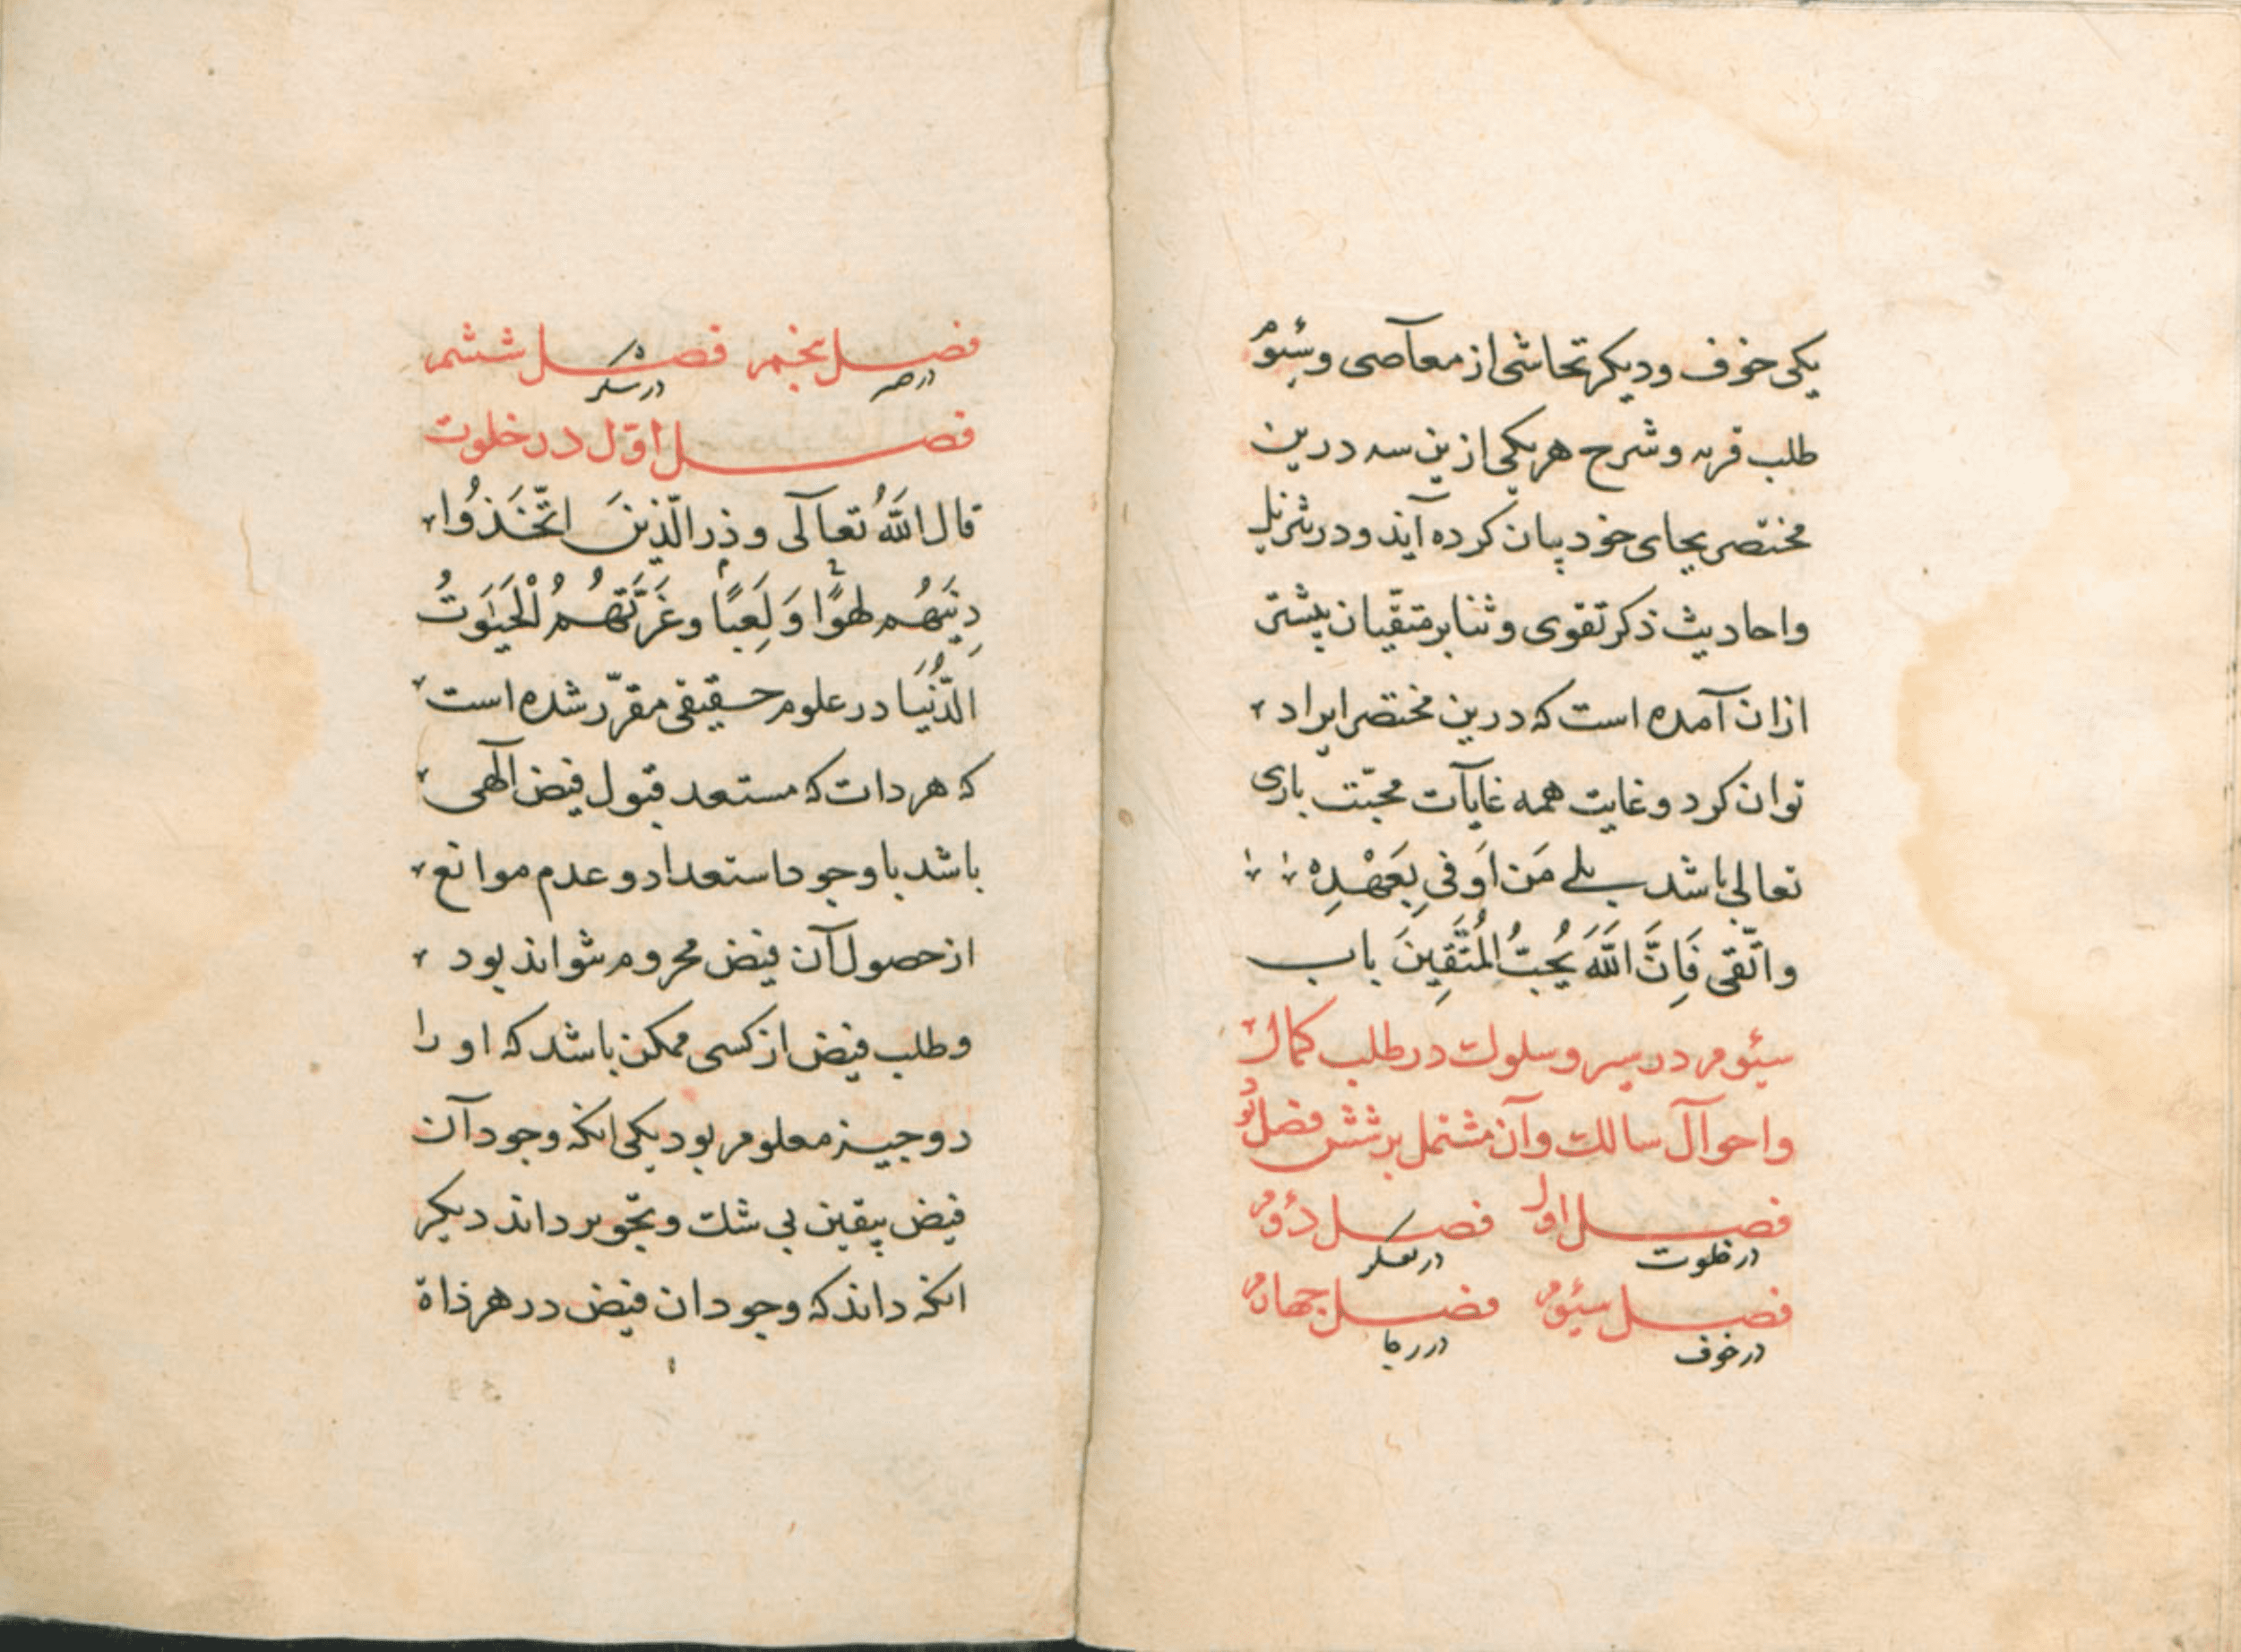 یکی خوف و دیکر تحاشی از معآصی و سئوم
طلب قربه و شرح هر یکی ازین سه درین
مختصر بجای خود بیان کرده آید و در تنزیل
واحادیث ذکر تقوی و ثنا بر متقّیان بیشتر
ازان آمده است که درین مختصر ایراد
توان کرد و غایت همه غایآت محبّت باری
تعالی باشد بلے مَن اَوفیِ بِعَهْدِه
واتّقی فَاِنَّ اللَّهَ یُحِبُّ المُتَّقِینَ باب
سئوم در سیر و سلوک در طلب کمال
واحوآل سالک وآن مشتمل بر شش فصل بُوَد
فصل اول فصل دؤم
در خلوت در تفکر
فصل سئوم فصل جهارم
در خوف در رجا
فصل پنجم فصل ششم
در صبر در شکر
فصل اوّل در خلوت
قال اللَّهُ تعآلی و ذرِ الّذینَ اتَّخَذُوا
دِینَهُم لهوًا وَ لَعِبًا و غَرَّتهُمُ لْحَیَوَتُ
الدُّنیَا در علوم حقیقی مقرّر شده است
که هر دات که مستعد قبول فیض آلهی
باشد با وجود استعداد و عدم موانع
از حصول آن فیض محروم نتواند بود
و طلب فیض از کسی ممکن باشد که او را
دو جیز معلوم بود یکی انکه وجود آن
فیض بیقین بی شک و تجویر داند دیکر
انکه داند که وجود ان فیض در هر ذاة